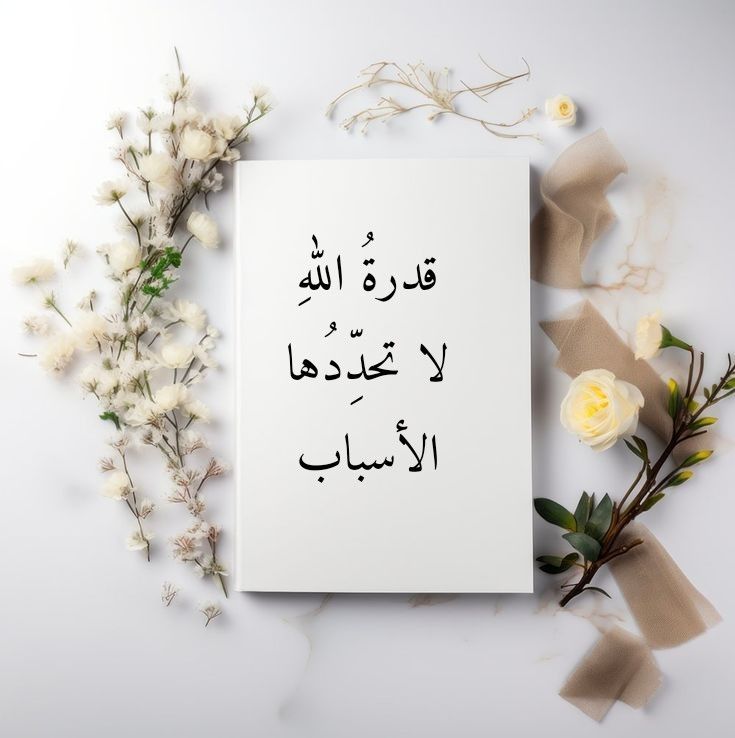 قدرةُ اللهِ
لا تحدِّدُها
الأسباب